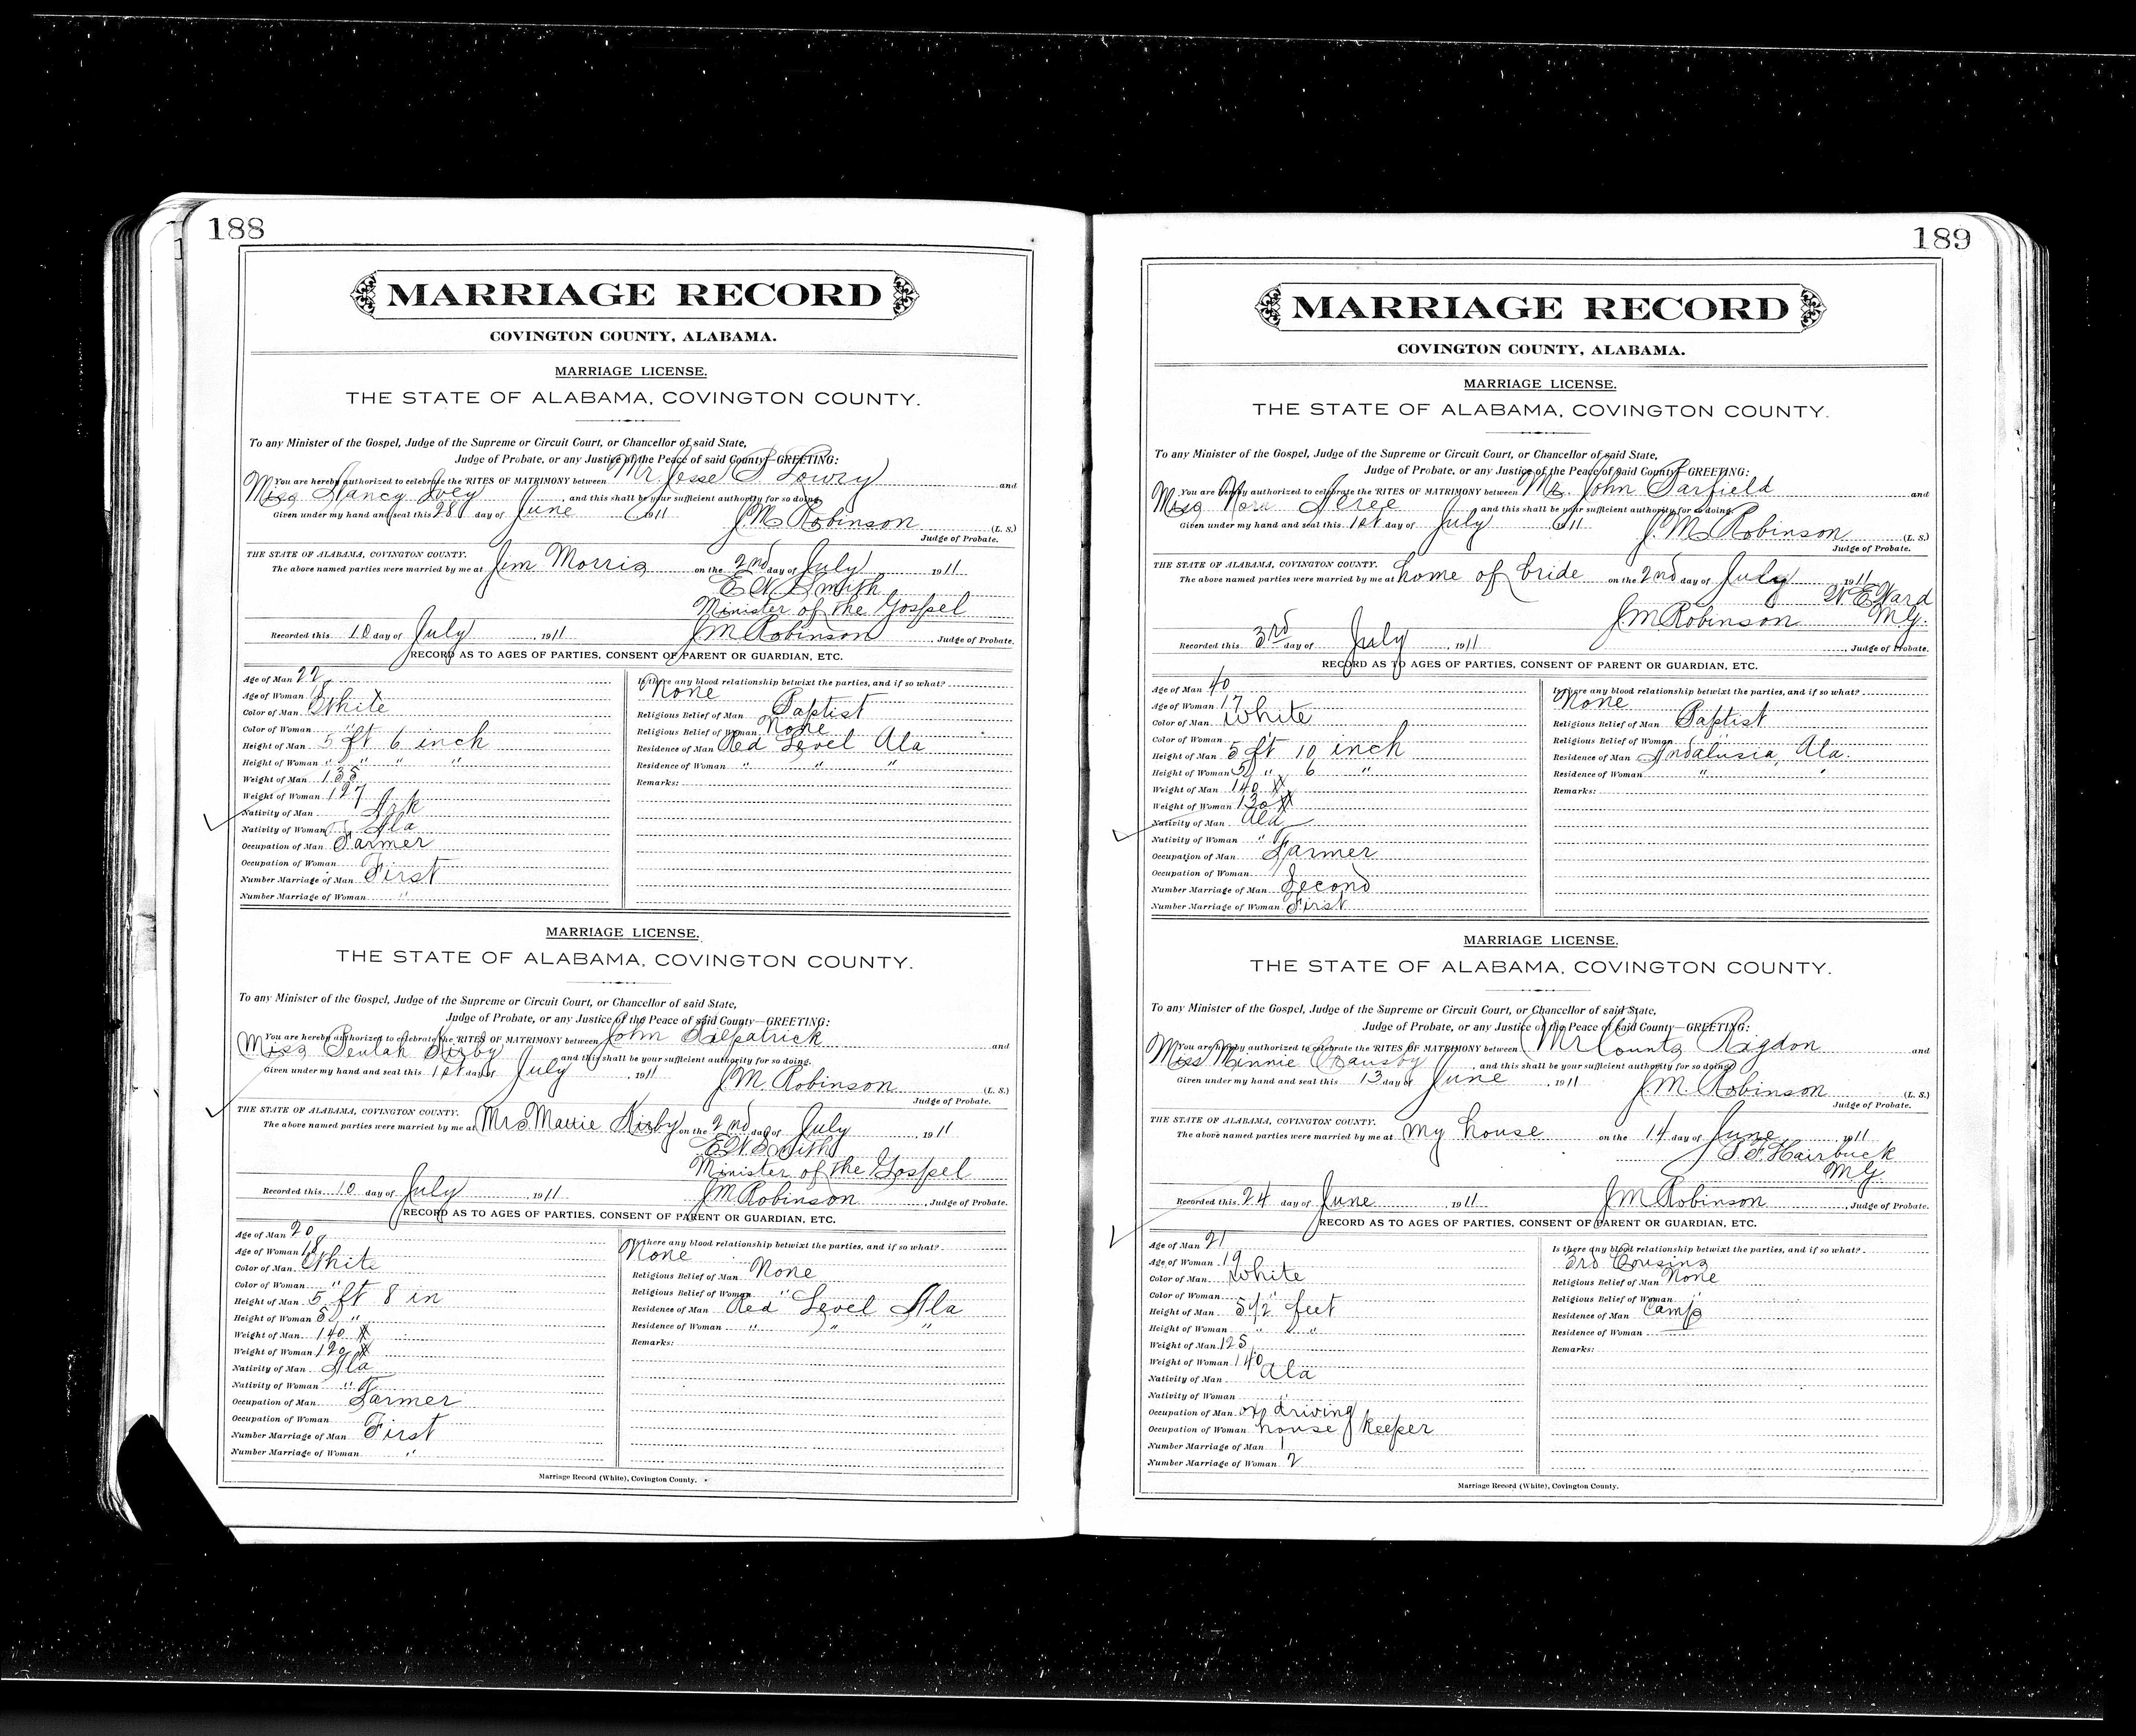 188
MARRIAGE RECORD
COVINGTON COUNTY, ALABAMA.
MARRIAGE LICENSE.
THE STATE OF ALABAMA, COVINGTON COUNTY.
To any Minister of the Gospel, Judge of the Supreme or Circuit Court, or Chancellor of said State,
Judge of Probate, or any Justice of the Peace of said County—GREETING:
You are hereby authorized to celebrate the RITES OF MATRIMONY between Mr Jesse S Lowry and
Miss Nancy Ivey, and this shall be your sufficient authority for so doing.
Given under my hand and seal this 28 day of June 1911 J.M. Robinson (L. S.)
Judge of Probate.
THE STATE OF ALABAMA, COVINGTON COUNTY.
The above named parties were married by me at Jim Morris on the 2nd day of July 1911
E W Smith
Minister of the Gospel
Recorded this 10 day of July, 1911 J.M. Robinson, Judge of Probate.
RECORD AS TO AGES OF PARTIES, CONSENT OF PARENT OR GUARDIAN, ETC.
Age of Man 22
Age of Woman
Color of Man White
Color of Woman "
Height of Man 5 ft 6 inch
Height of Woman " " " "
Weight of Man 135
Weight of Woman 127
Nativity of Man Ark
Nativity of Woman Ala
Occupation of Man Farmer
Occupation of Woman
Number Marriage of Man First
Number Marriage of Woman "
Is there any blood relationship betwixt the parties, and if so what?
None
Religious Belief of Man Baptist
Religious Belief of Woman None
Residence of Man Red Level Ala
Residence of Woman " " "
Remarks:
MARRIAGE LICENSE.
THE STATE OF ALABAMA, COVINGTON COUNTY.
To any Minister of the Gospel, Judge of the Supreme or Circuit Court, or Chancellor of said State,
Judge of Probate, or any Justice of the Peace of said County—GREETING:
You are hereby authorized to celebrate the RITES OF MATRIMONY between John Kilpatrick and
Miss Beulah Kirby and this shall be your sufficient authority for so doing.
Given under my hand and seal this 1st day of July, 1911 J.M. Robinson (L. S.)
Judge of Probate.
THE STATE OF ALABAMA, COVINGTON COUNTY.
The above named parties were married by me at Mrs Mattie Kirby on the 2nd day of July, 1911
E W Smith
Minister of the Gospel
Recorded this 10 day of July, 1911 J.M. Robinson, Judge of Probate.
RECORD AS TO AGES OF PARTIES, CONSENT OF PARENT OR GUARDIAN, ETC.
Age of Man 20
Age of Woman 18
Color of Man White
Color of Woman "
Height of Man 5 ft 8 in
Height of Woman 5 "
Weight of Man 140 #
Weight of Woman 120 #
Nativity of Man Ala
Nativity of Woman "
Occupation of Man Farmer
Occupation of Woman
Number Marriage of Man First
Number Marriage of Woman "
Is there any blood relationship betwixt the parties, and if so what?
None
Religious Belief of Man None
Religious Belief of Woman "
Residence of Man Red Level Ala
Residence of Woman " " "
Remarks:
Marriage Record (White), Covington County.
189
MARRIAGE RECORD
COVINGTON COUNTY, ALABAMA.
MARRIAGE LICENSE.
THE STATE OF ALABAMA, COVINGTON COUNTY.
To any Minister of the Gospel, Judge of the Supreme or Circuit Court, or Chancellor of said State,
Judge of Probate, or any Justice of the Peace of said County—GREETING:
You are hereby authorized to celebrate the RITES OF MATRIMONY between Mr. John Barfield and
Miss Nora and this shall be your sufficient authority for so doing.
Given under my hand and seal this 1st day of July 1911 J. M Robinson (L. S.)
Judge of Probate.
THE STATE OF ALABAMA, COVINGTON COUNTY.
The above named parties were married by me at home of bride on the 2nd day of July 1911
W. E. Ward
M.G.
J.M. Robinson
Recorded this 3rd day of July, 1911, Judge of Probate.
RECORD AS TO AGES OF PARTIES, CONSENT OF PARENT OR GUARDIAN, ETC.
Age of Man 40
Age of Woman 17
Color of Man White
Color of Woman "
Height of Man 5 ft 10 inch
Height of Woman 5 " 6 "
Weight of Man 140 #
Weight of Woman 130 #
Nativity of Man Ala
Nativity of Woman "
Occupation of Man Farmer
Occupation of Woman
Number Marriage of Man Second
Number Marriage of Woman First
Is there any blood relationship betwixt the parties, and if so what?
None
Religious Belief of Man Baptist
Religious Belief of Woman "
Residence of Man Andalusia, Ala.
Residence of Woman " "
Remarks:
MARRIAGE LICENSE.
THE STATE OF ALABAMA, COVINGTON COUNTY.
To any Minister of the Gospel, Judge of the Supreme or Circuit Court, or Chancellor of said State,
Judge of Probate, or any Justice of the Peace of said County—GREETING:
You are hereby authorized to celebrate the RITES OF MATRIMONY between Mr Rigdon and
Miss Minnie, and this shall be your sufficient authority for so doing
Given under my hand and seal this 13 day of June, 1911 J.M. Robinson (L. S.)
Judge of Probate.
THE STATE OF ALABAMA, COVINGTON COUNTY.
The above named parties were married by me at my house on the 14 day of June, 1911
M.G.
Recorded this 24 day of June, 1911 J.M Robinson, Judge of Probate.
RECORD AS TO AGES OF PARTIES, CONSENT OF PARENT OR GUARDIAN, ETC.
Age of Man 21
Age of Woman 19
Color of Man White
Color of Woman "
Height of Man 5 1/2 feet
Height of Woman " " "
Weight of Man 125
Weight of Woman 140
Nativity of Man Ala
Nativity of Woman "
Occupation of Man ox driving
Occupation of Woman house keeper
Number Marriage of Man 1
Number Marriage of Woman 2
Is there any blood relationship betwixt the parties, and if so what?
3rd Cousins
Religious Belief of Man None
Religious Belief of Woman "
Residence of Man Camp
Residence of Woman
Remarks:
Marriage Record (White), Covington County.